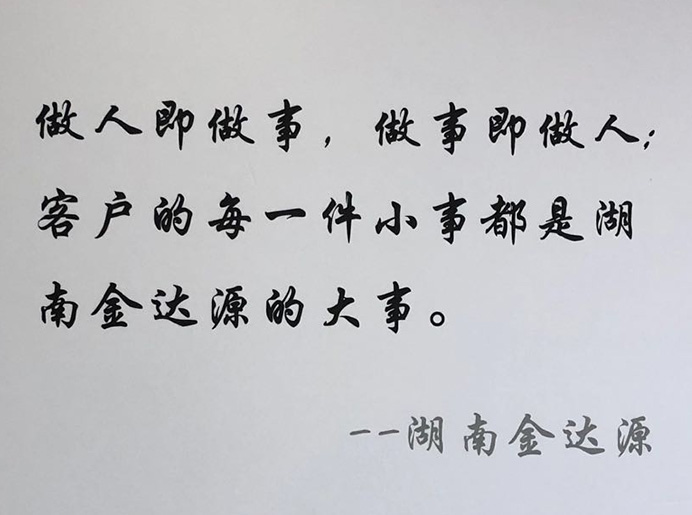 做人即做事，做事即做人；
客户的每一件小事都是湖
南金达源的大事。
--湖南金达源